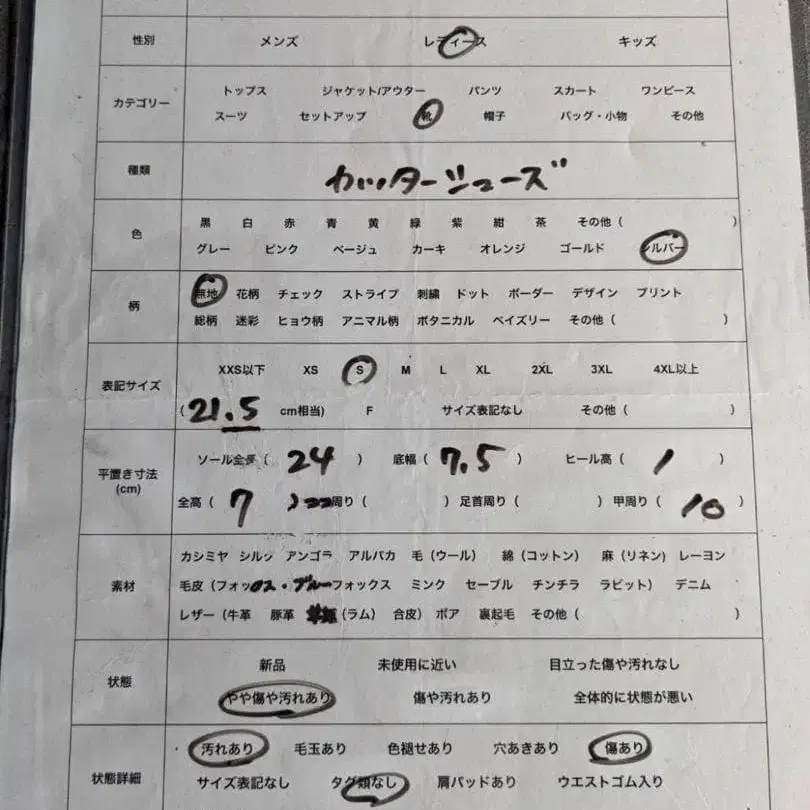 性別 メンズ レディース キッズ
カテゴリー トップス ジャケット/アウター パンツ スカート ワンピース
スーツ セットアップ 靴 帽子 バッグ・小物 その他
種類 カッターシューズ
色 黒 白 赤 青 黄 緑 紫 紺 茶 その他 ( )
グレー ピンク ベージュ カーキ オレンジ ゴールド シルバー
柄 無地 花柄 チェック ストライプ 刺繍 ドット ボーダー デザイン プリント
総柄 迷彩 ヒョウ柄 アニマル柄 ボタニカル ペイズリー その他 ( )
表記サイズ XXS以下 XS S M L XL 2XL 3XL 4XL以上
( 21.5 cm相当) F サイズ表記なし その他 ( )
平置き寸法 ソール全長 ( 24 ) 底幅 ( 7.5 ) ヒール高 ( 1 )
(cm) 全高 ( 7 ) ココ周り ( ) 足首周り ( ) 甲周り ( 10 )
素材 カシミヤ シルク アンゴラ アルパカ 毛 (ウール) 綿 (コットン) 麻 (リネン) レーヨン
毛皮 (フォックス・ブルーフォックス ミンク セーブル チンチラ ラビット) デニム
レザー (牛革 豚革 (ラム) 合皮) ボア 裏起毛 その他 ( )
状態 新品 未使用に近い 目立った傷や汚れなし
やや傷や汚れあり 傷や汚れあり 全体的に状態が悪い
状態詳細 汚れあり 毛玉あり 色褪せあり 穴あきあり 傷あり
サイズ表記なし タグ類なし 肩パッドあり ウエストゴム入り